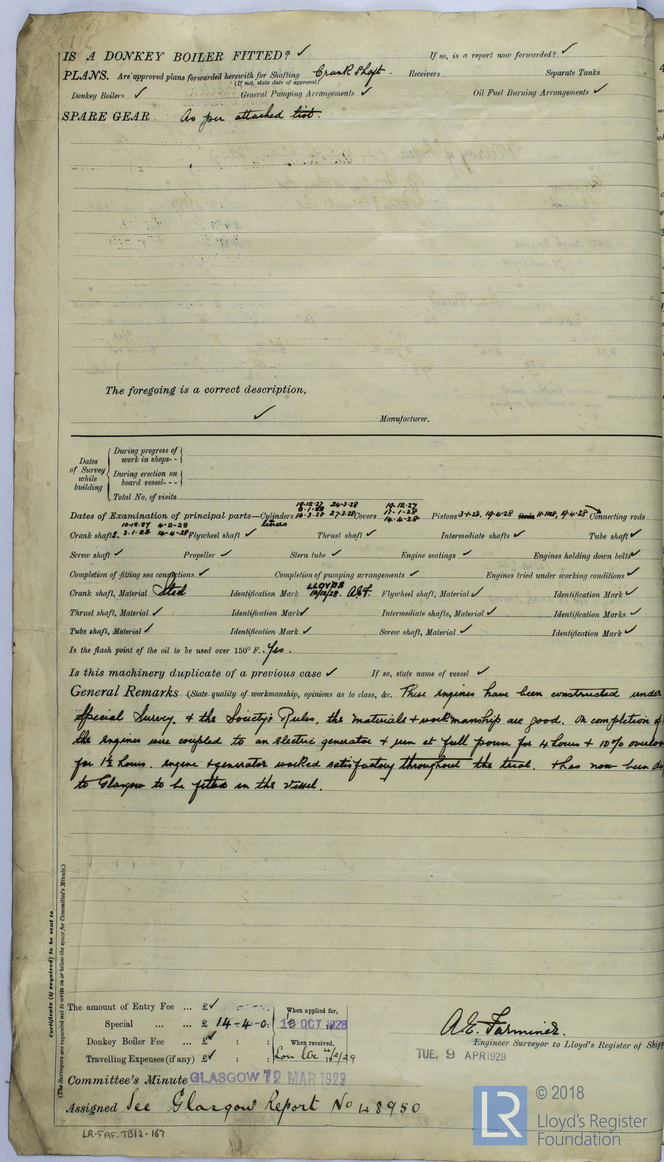 IS A DONKEY BOILER FITTED? ✓ If so, is a report now forwarded? ✓
PLANS. Are approved plans forwarded herewith for Shafting Crank Shaft. Receivers Separate Tanks
(If not, state date of approval)
Donkey Boilers ✓ General Pumping Arrangements ✓ Oil Fuel Burning Arrangements ✓
SPARE GEAR As per attached list.
The foregoing is a correct description,
✓ Manufacturer.
Dates of Survey while building
During progress of work in shops - -
During erection on board vessel - - -
Total No. of visits
Dates of Examination of principal parts—Cylinders 24-3-28 27-3-28 Covers 19-12-27 17-1-28 14-4-28 Pistons 3-1-28, 19-4-28 Connecting rods
liners
Crank shaft 3-1-28 4-2-28 14-4-28 Flywheel shaft ✓ Thrust shaft ✓ Intermediate shafts ✓ Tube shaft ✓
Screw shaft ✓ Propeller ✓ Stern tube ✓ Engine seatings ✓ Engines holding down bolts ✓
Completion of fitting sea connections ✓ Completion of pumping arrangements ✓ Engines tried under working conditions ✓
Crank shaft, Material Steel Identification Mark LLOYDS A.E.F. Flywheel shaft, Material ✓ Identification Mark ✓
Thrust shaft, Material ✓ Identification Mark ✓ Intermediate shafts, Material ✓ Identification Marks ✓
Tube shaft, Material ✓ Identification Mark ✓ Screw shaft, Material ✓ Identification Mark ✓
Is the flash point of the oil to be used over 150° F. Yes.
Is this machinery duplicate of a previous case ✓ If so, state name of vessel ✓
General Remarks (State quality of workmanship, opinions as to class, &c. These engines have been constructed under
Special Survey, & the Society's Rules, the materials + workmanship are good. On completion of
the engines were coupled to an electric generator + run at full power for 4 hours + 10% overload
for 1½ hours. engine + generator worked satisfactory throughout the trial. + has now been
to Glasgow to be fitted in the vessel.
Certificate (if required) to be sent to
(The Surveyors are requested not to write on or below the space for Committee's Minute.)
The amount of Entry Fee ... £ ✓ : : When applied for,
Special ... ... £ 14-4-0 : OCT 1928
Donkey Boiler Fee ... £ ✓ : : When received,
Travelling Expenses (if any) £ ✓ : :
A.E. Farminer.
Engineer Surveyor to Lloyd's Register of Ship
TUE. 9 APR 1929
Committee's Minute GLASGOW 12 MAR 1929
Assigned See Glasgow Report No 48950
LR-FAF-TB12-167
LR © 2018
Lloyd's Register
Foundation